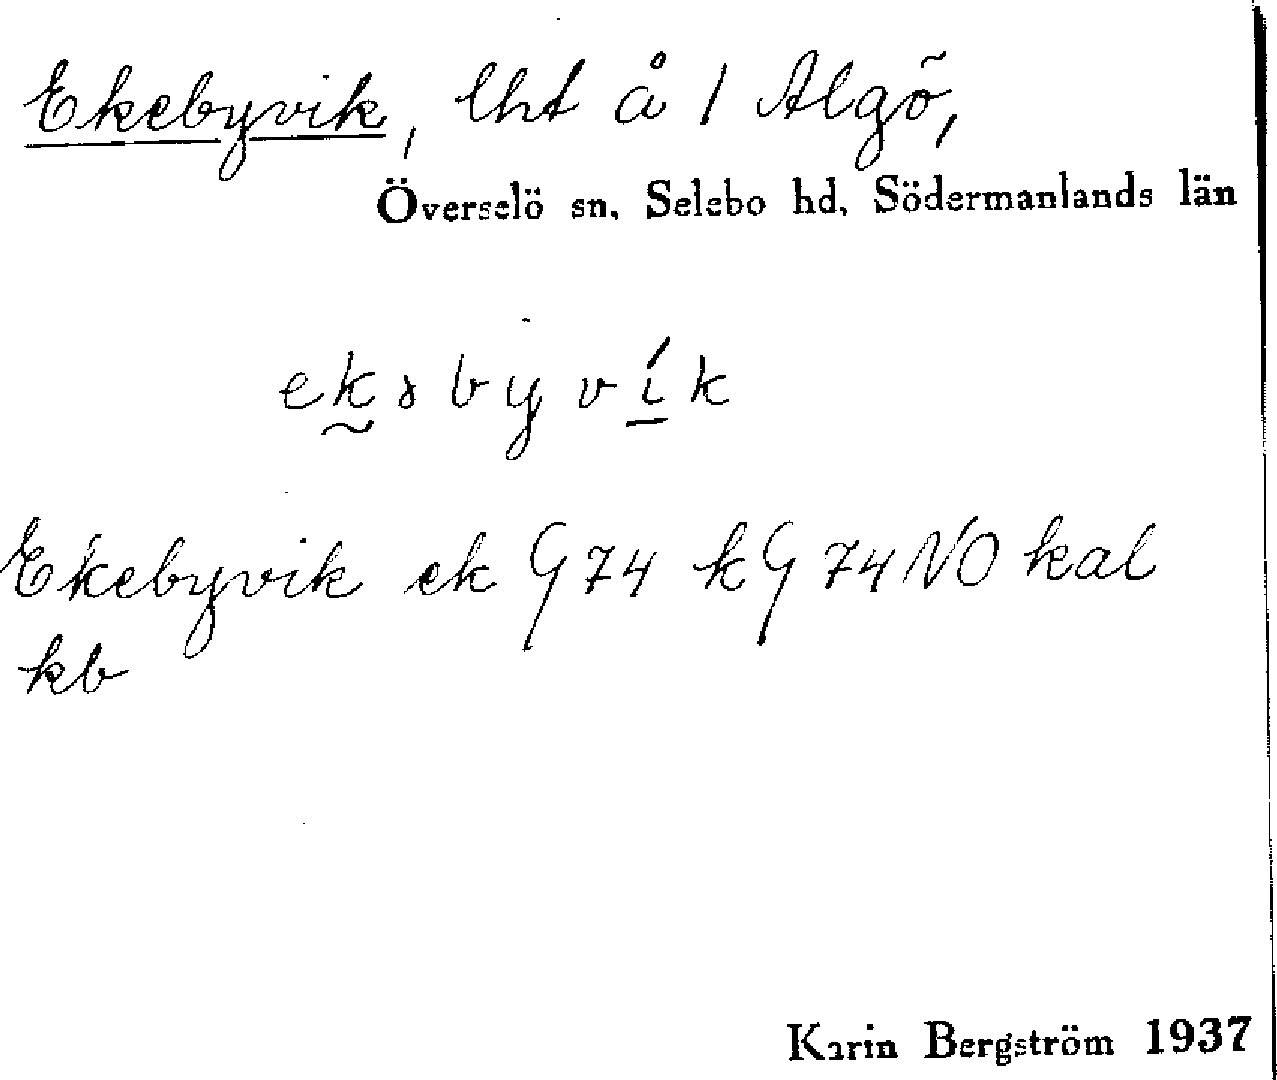 Ekebyvik, lht å 1 Algö,
Överselö sn, Selebo hd, Södermanlands län
eksbyvík
Ekebyvik ek G 74 k G 74 NO kal
kb
Karin Bergström 1937